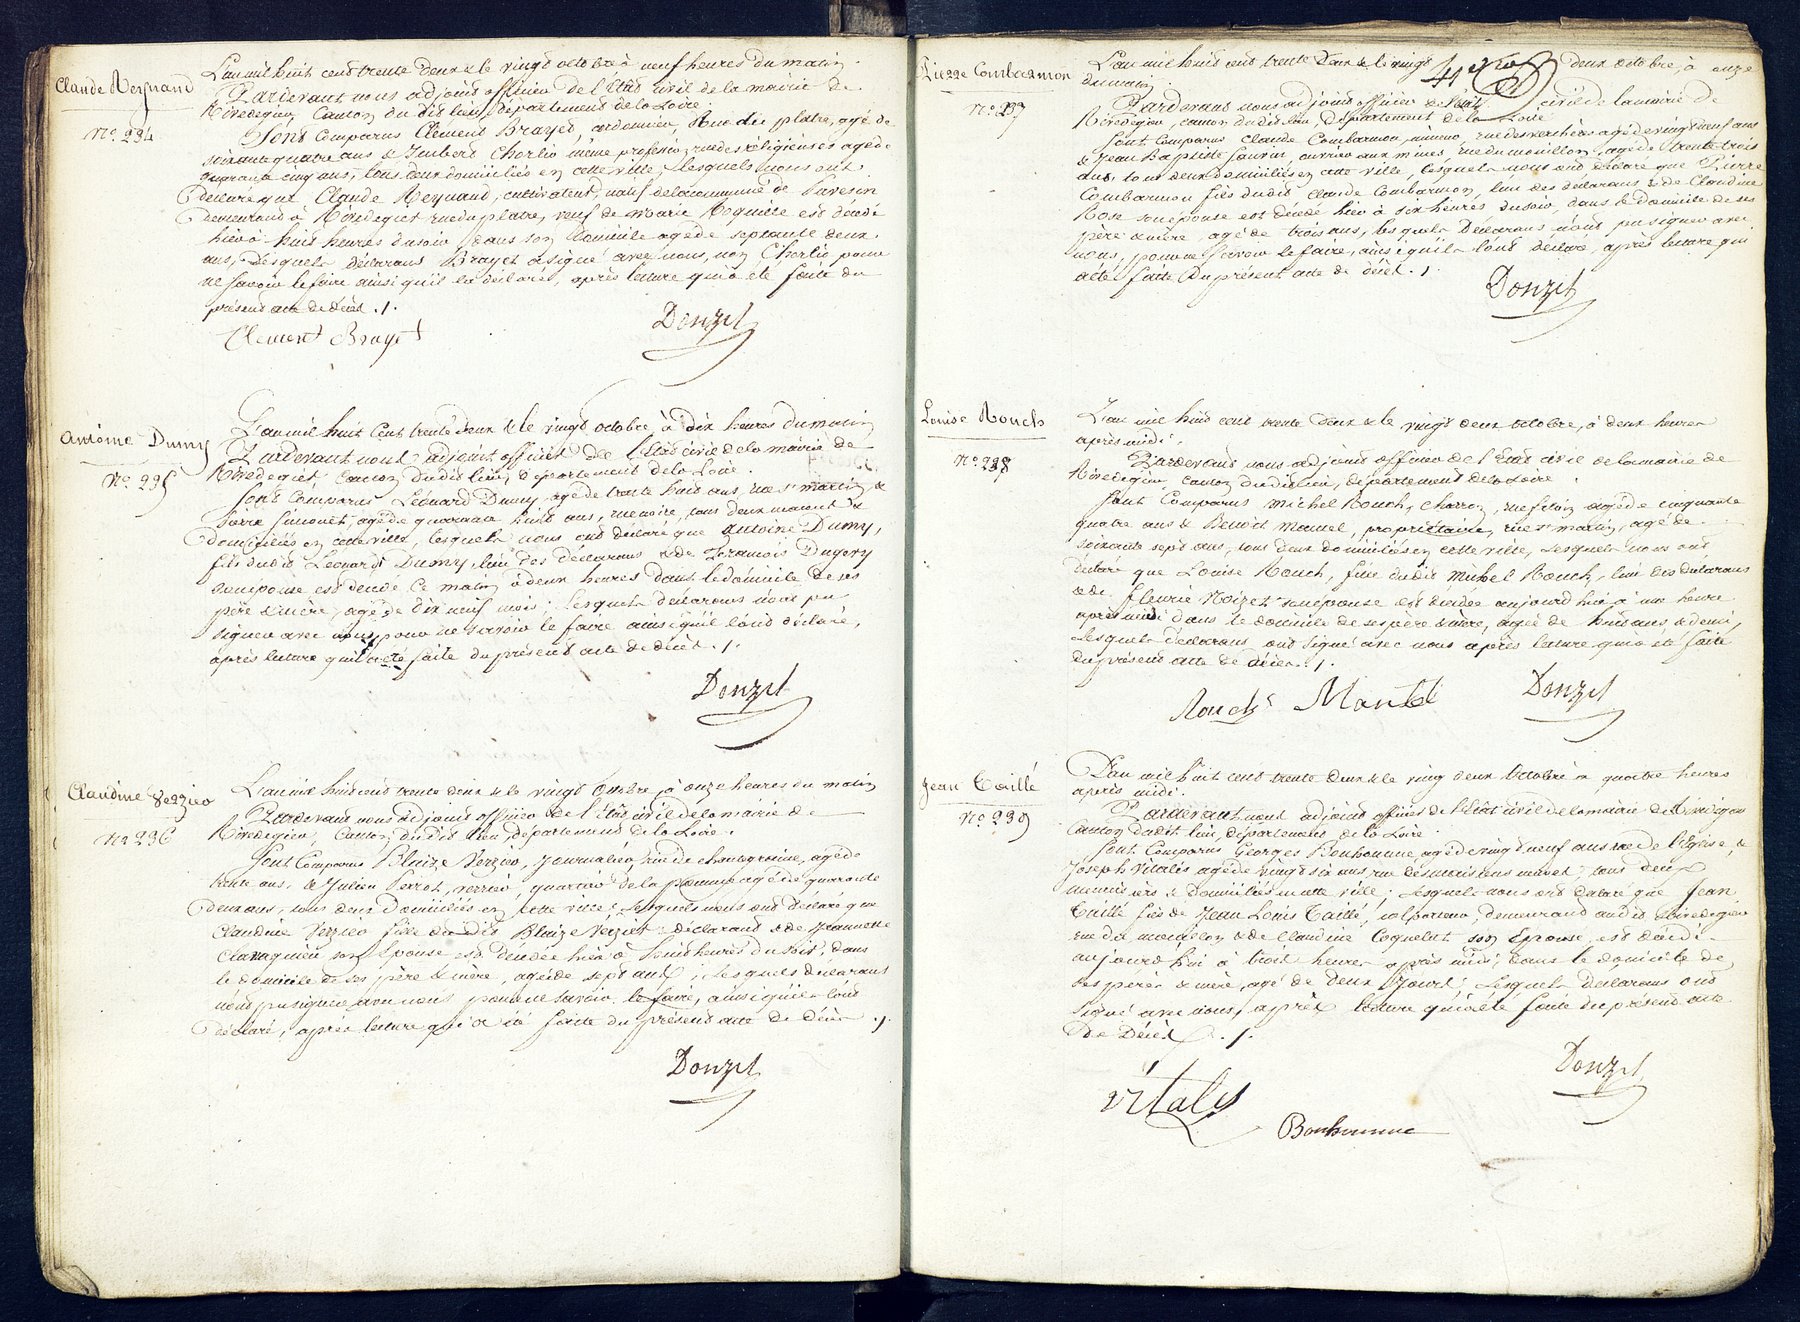 Claude Reynaud
No. 234
L'an mil huit cent trente deux & le vingt octobre à neuf heures du matin
Pardevant nous adjoint officier de l'Etat civil de la mairie de
Rivedegier, Canton du dit lieu, département de la Loire
Sont comparus Clément Brayet, cordonnier, Rue du plâtre, agé de
soixante quatre ans & Imbert Chorlio même profession, rue des réligieuses agé de
quarante cinq ans, tous deux domiciliés en cette ville, lesquels nous ont
déclaré que Claude Reynaud, cultivateur, natif de la commune de Pavesin
demeurant à Rivedegier rue du platre, veuf de Marie Roquière est décédé
hier à huit heures du soir, dans son domicile agé de septante deux
ans, Lesquels déclarans Brayet a signé avec nous, non Chorlio pour
ne savoir le faire ainsi qu'il la déclaré, après lecture qui a été faite du
présent acte de décès ./.
Clement Brayet Donzel
Antoine Dumy
No. 235
L'an mil huit cent trente deux & le vingt octobre à dix heures du matin
Pardevant nous adjoint officier de l'Etat civil de la mairie de
Rivedegier, Canton du dit lieu, département de la Loire.
Sont Comparus Léonard Dumy agé de trente huit ans, rue St martin, &
pierre Simonet, agé de quarante huit ans, tous deux
domiciliés en cette ville, lesquels nous ont déclaré que antoine Dumy,
fils du dit Léonard Dumy, l'un des déclarans & de
son épouse est décédé ce matin à deux heures dans le domicile de ses
père & mère, agé de dix neuf mois; Lesquels déclarans n'ont pu
signer avec nous, pour ne savoir le faire ainsi qu'il l'ont déclaré,
après lecture qui a été faite du présent acte de décès ./.
Donzel
Claudine Verzieo
No. 236
L'an mil huit cent trente deux & le vingt octobre à onze heures du matin
Pardevant nous adjoint officier de l'Etat civil de la mairie de
Rivedegier, Canton du dit lieu, département de la Loire.
Sont Comparus Blaize Verzieo, journalier, agé de
trente ans, & Julien Perrot, verrier, quartier de la pomme agé de quarante
deux ans, tous deux domiciliés en cette ville; Lesquels nous ont déclaré que
Claudine Verzieo fille du dit Blaize déclarant & de Jeannette
son Epouse est décédée hier à huit heures du soir, dans
le domicile de ses père & mère, agée de sept ans; Lesquels déclarans
n'ont pu signer avec nous pour ne savoir le faire, ainsi qu'il l'ont
déclaré, après lecture qui a été faite du présent acte de décès ./.
Donzel
41
Pierre Combarmon
No. 237
L'an mil huit cent trente deux & le vingt deux octobre, à onze
du matin
Pardevant nous adjoint officier de l'Etat civil de la mairie de
Rivedegier, canton du dit lieu, Département de la Loire
Sont comparus Claude Combarmon, mineur, rue des agé de vingt neuf ans
& Jean Baptiste ouvrier aux mines rue du mouillon, agé de trente trois
ans, tous deux domiciliés en cette ville, lesquels nous ont déclaré que Pierre
Combarmon fils du dit Claude Combarmon, l'un des déclarans & de Claudine
Rose son épouse est décédé hier à six heures du soir, dans le domicile de ses
père & mère, agé de trois ans, lesquels déclarans n'ont pu signer avec
nous, pour ne savoir le faire, ainsi qu'il l'ont déclaré, après lecture qui
a été faite du présent acte de décès ./.
Donzel
Louise Rouch
No. 238
L'an mil huit cent trente deux & le vingt deux octobre, à deux heures
après midi.
Pardevant nous adjoint officier de l'Etat civil de la mairie de
Rivedegier, canton du dit lieu, département de la Loire.
Sont Comparus Michel Rouch, charron, agé de cinquante
quatre ans & Benoit Mantel, propriétaire, rue St martin, agé de
soixante sept ans, tous deux domiciliés en cette ville, Lesquels nous ont
déclaré que Louise Rouch, fille du dit Michel Rouch, l'un des déclarans
& de fleurie Noizet son épouse est décédée aujourd'hui à une heure
après midi dans le domicile de ses père & mère, agée de huit ans & demi,
Lesquels déclarans ont signé avec nous après lecture qui a été faite
du présent acte de décès ./.
Rouch Mantel Donzel
Jean Taillé
No. 239
L'an mil huit cent trente deux & le vingt deux octobre à quatre heures
après midi.
Pardevant nous adjoint officier de l'Etat civil de la mairie de Rivedegier
Canton du dit lieu, département de la Loire.
Sont Comparus Georges Bonhomme, agé de vingt neuf ans rue de l'Eglise, &
Joseph Vitalis agé de vingt six ans, tous deux
& domiciliés en cette ville; Lesquels nous ont déclaré que Jean
Taillé fils de Jean Louis Taillé, colporteur, demeurant au dit Rivedegier
rue du mouillon & de Claudine Coquelet son Epouse est décédé
aujourd'hui à trois heures après midi, dans le domicile de
ses père & mère, agé de deux jours; Lesquels déclarans ont
signé avec nous, après lecture qui a été faite du présent acte
de Décès ./.
Donzel
Vitalis
Bonhomme